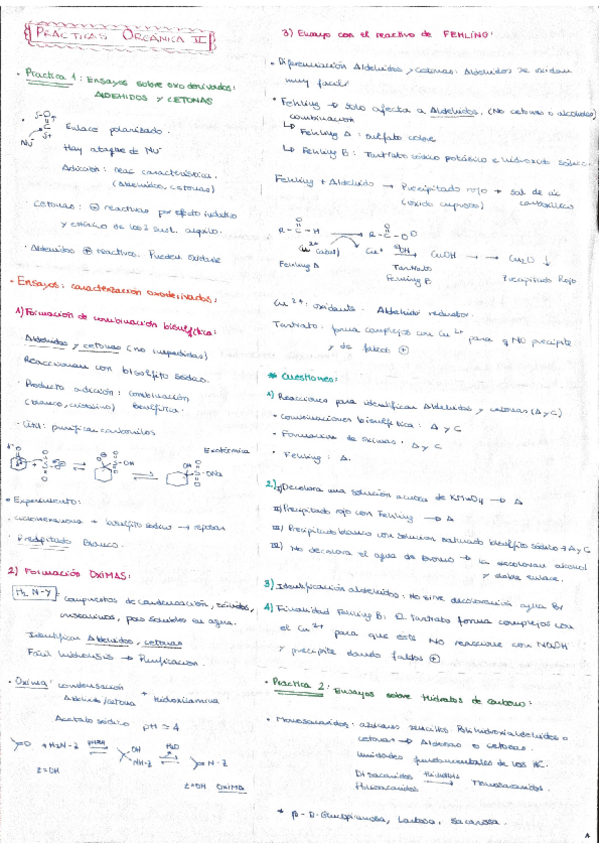 PRÁCTICAS ORGÁNICA II
• Práctica 1: Ensayos sobre oxoderivados:
ALDEHIDOS Y CETONAS
Enlace polarizado.
Hay ataque de Nu⁻
Nu⁻
Adición: reac características.
(Aldehídos, cetonas)
• Cetonas: ⊖ reactivas por efecto inductivo
y estérico de los 2 sust. alquilo.
• Aldehidos ⊕ reactivos. Pueden oxidarse
• Ensayos: caracterización oxoderivados:
1) Formación de combinación bisulfítica:
Aldehidos y cetonas (no impedidas)
Reaccionan con bisulfito sódico.
• Producto adición: combinación
(blanco, cristalino) bisulfítica.
• Útil: purificar carbonilos
Exotérmica
• Experimento:
• ciclohexanona + bisulfito sódico → reposar
• Precipitado Blanco.
2) Formación OXIMAS:
H₂N-Y: compuestos de condensación, sólidos,
cristalinos, poco solubles en agua.
Identificar Aldehidos, cetonas
Fácil hidrólisis → Purificación.
• Oxima: condensación
Aldehido/cetona + hidroxilamina
Acetato sódico pH ≈ 4
O + H₂N-Z
OH
NH-Z
H₂O
N-Z
Z=OH
Z=OH OXIMA
3) Ensayo con el reactivo de FEHLING:
• Diferenciación Aldehidos y cetonas: Aldehidos se oxidan
muy fácil
• Fehling → Solo afecta a Aldehidos. (No cetonas o alcoholes)
combinación
↳ Fehling A: sulfato cobre
↳ Fehling B: Tartrato sódico potásico e hidróxido sódico.
Fehling + Aldehido → Precipitado rojo + sal de ác
(óxido cuproso) carboxílico
R-C-H
R-C-O⊖
Cu²⁺ (azul) Cu⁺ → CuOH → Cu₂O ↓
Fehling A Tartrato Precipitado Rojo
Fehling B
Cu²⁺: oxidante. Aldehido reductor.
Tartrato: forma complejos con Cu²⁺ para q NO precipite
y de falsos ⊕
* Cuestiones:
1) Reacciones para identificar Aldehidos y cetonas (A y C)
• Combinaciones bisulfítica: A y C
• Formación de oximas: A y C
• Fehling: A.
2) I) Decolora una solución acuosa de KMnO₄ → A
II) Precipitado rojo con Fehling → A
III) Precipitado blanco con solución saturada bisulfito sódico → A y C
IV) No decolora el agua de bromo → la decoloran alcohol
y doble enlace.
3) Identificación aldehidos: No sirve decoloración agua Br
4) Finalidad Fehling B: El Tartrato forma complejos con
el Cu²⁺ para que éste NO reaccione con NaOH
y precipite dando falsos ⊕
• Práctica 2: Ensayos sobre Hidratos de carbono:
• Monosacáridos: azúcares sencillos. Polihidroxialdehidos o
cetonas → Aldosas o cetosas.
Unidades fundamentales de los HC.
Disacáridos Hidrólisis → Monosacáridos.
* β-D-Glucopiranosa, Lactosa, Sacarosa.